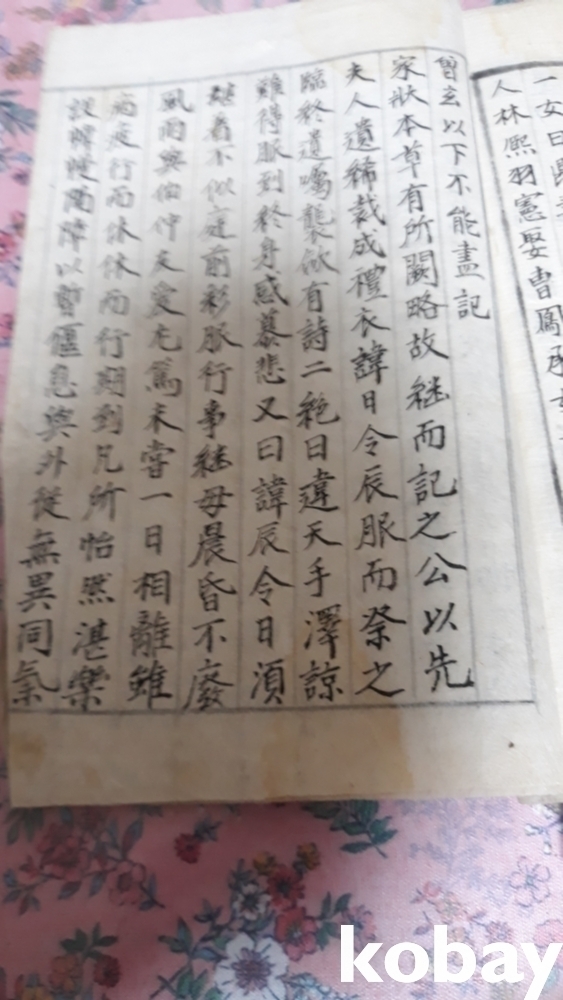 一女曰
人林熙羽憲娶曹鳳承女
曾玄以下不能盡記
家狀本草有所闕略故継而記之公以先
夫人遺稀裁成禮衣諱日令辰服而祭之
臨終遺囑襲斂有詩二絶曰違天手澤諒
難得服到終身感慕悲又曰諱辰令日湏
継着不似庭前彩服行事継母晨昏不廢
風雨與伯仲友愛尤篤未嘗一日相離雖
病疲行而休休而行期到凡所怡然湛樂
設幃障以暫偃息與外從無異同氣
kobay